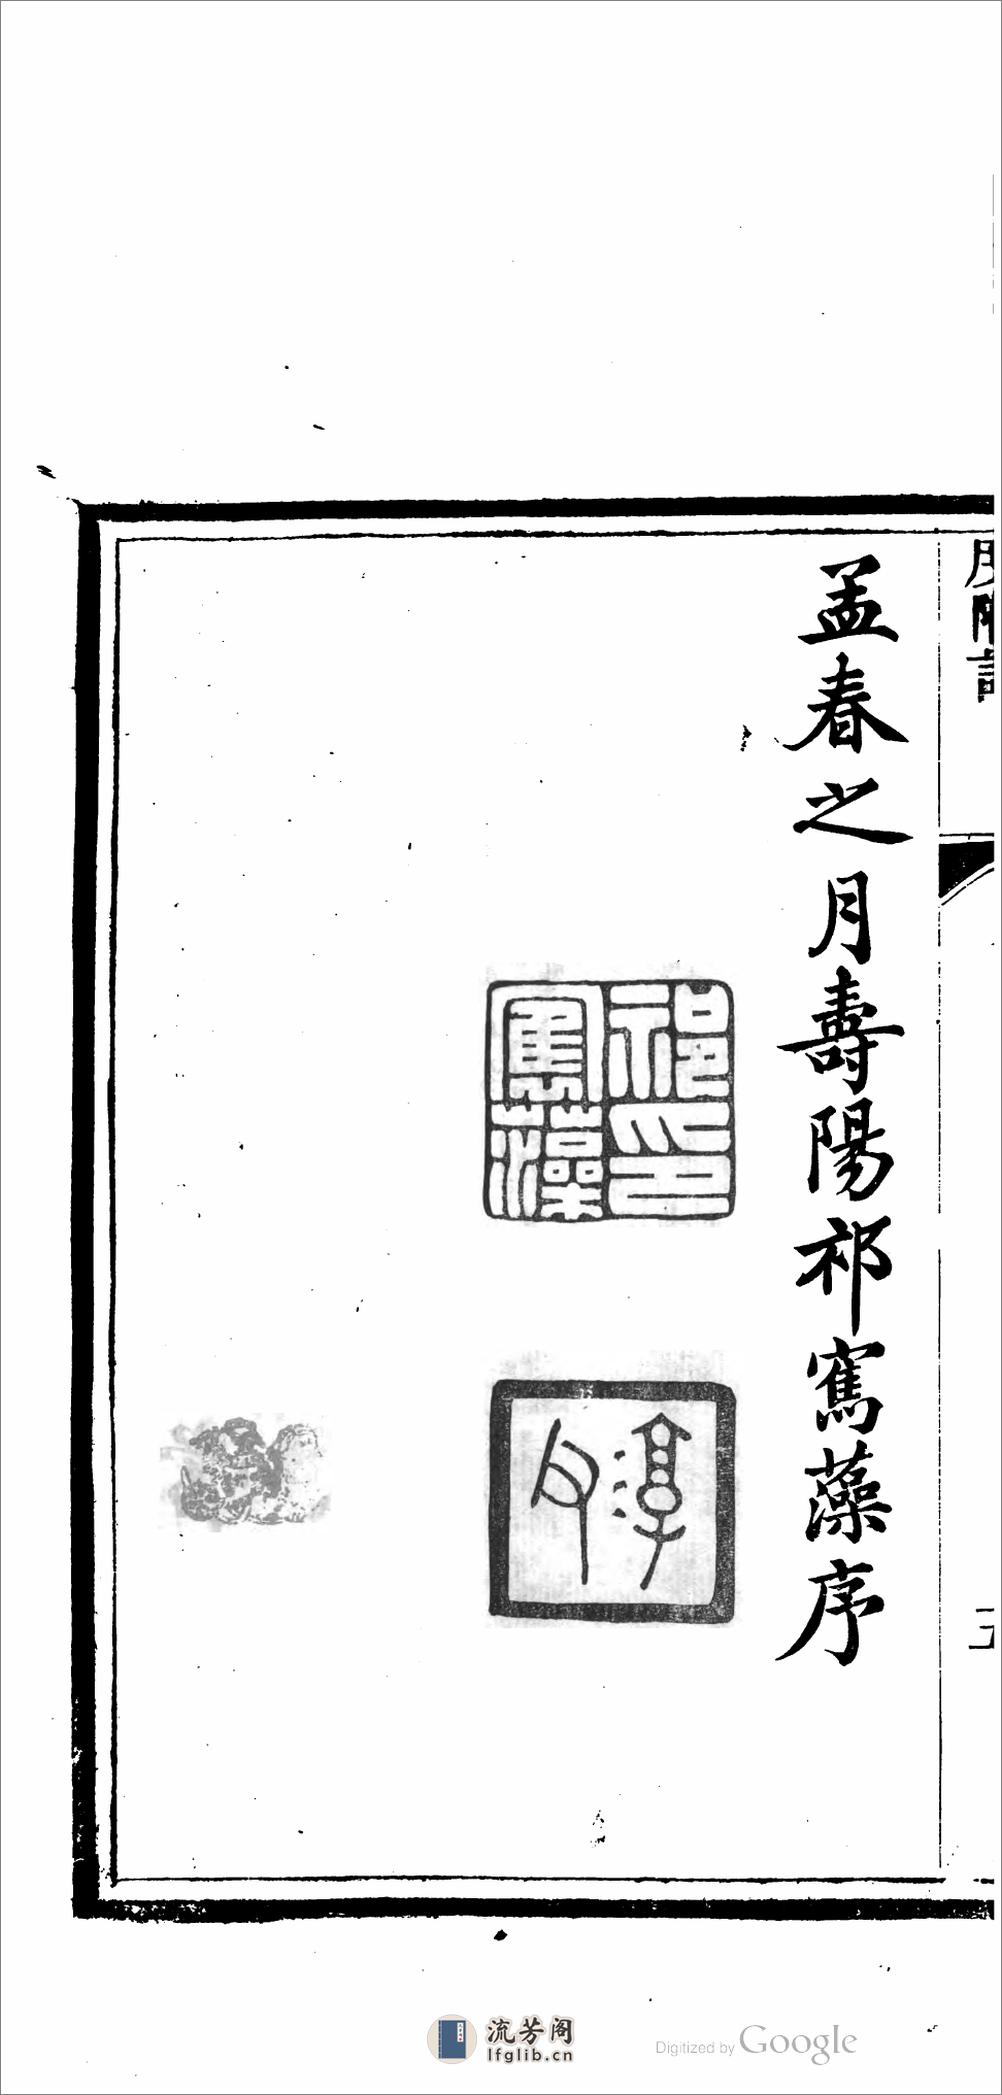 孟春之月壽陽祁寯藻序
祁寯藻印
淳甫
流芳阁
lfglib.cn
Digitized by Google